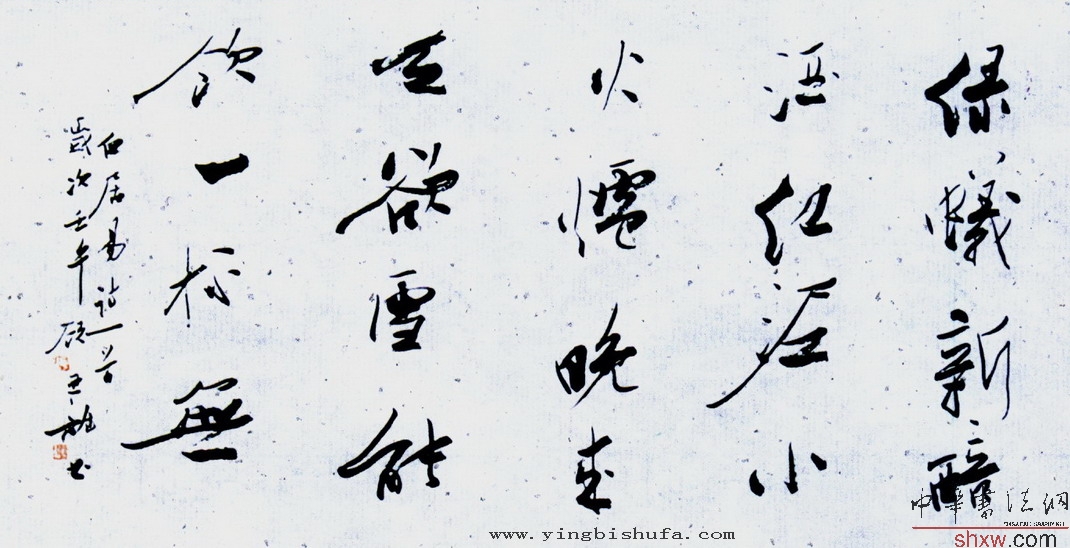 绿蟻新醅
酒红泥小
火爐晚来
天欲雪能
飲一杯無
白居易詩一首
歲次壬午
书
中华書法网
shxw.com
www.yingbishufa.com